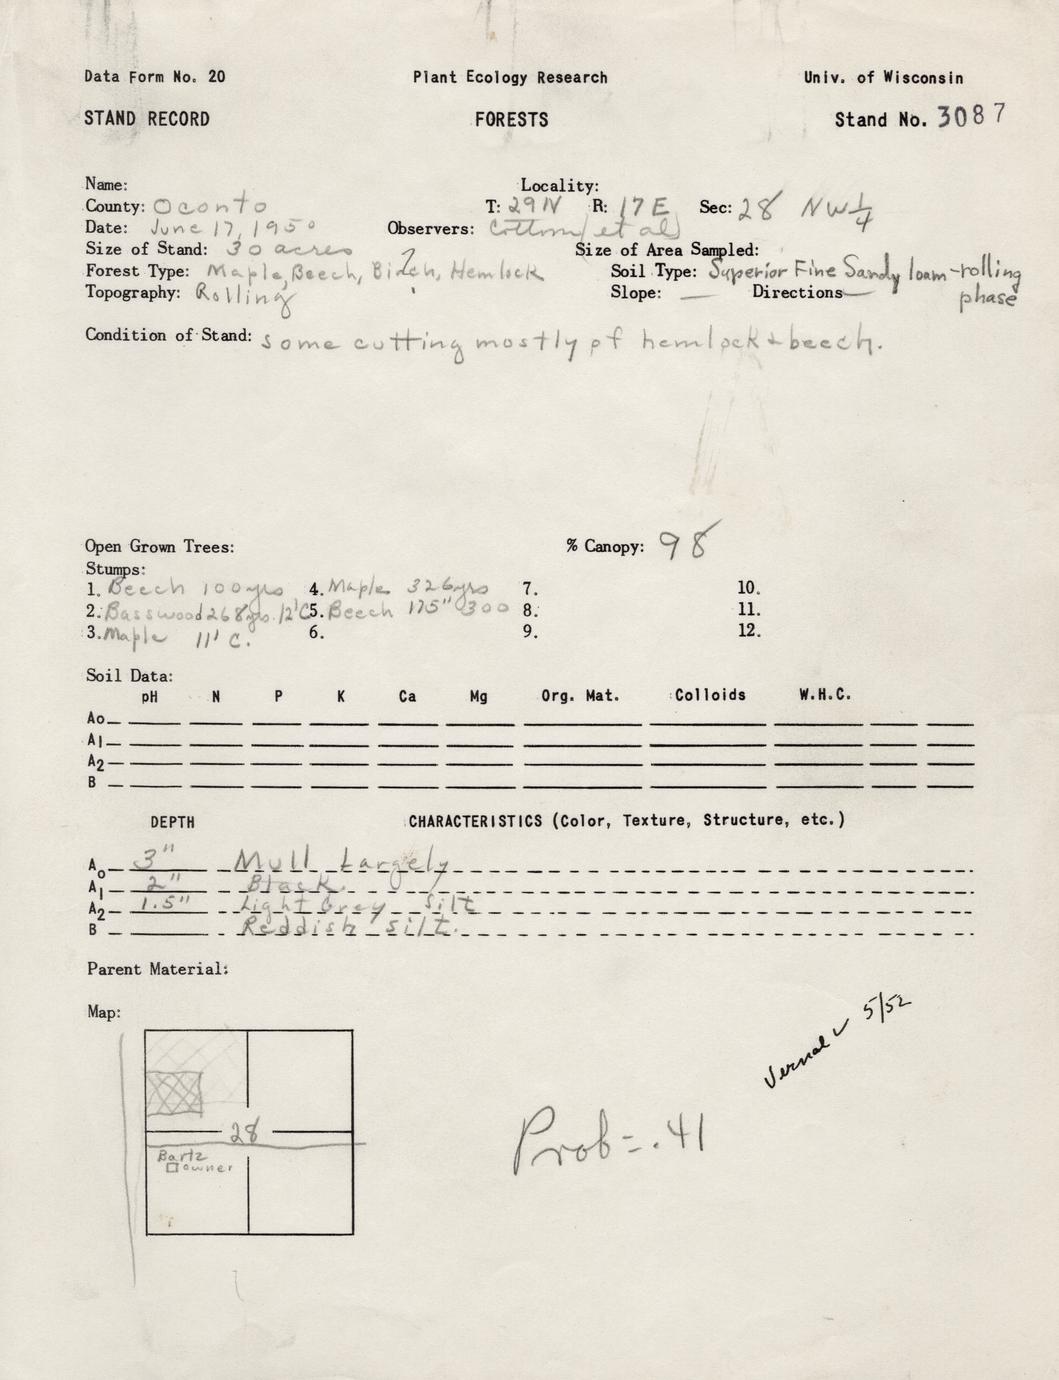 Data Form No. 20 Plant Ecology Research Univ. of Wisconsin
STAND RECORD FORESTS Stand No. 3087
Name: Locality:
County: Oconto T: 29N R: 17E Sec: 28 NW 1/4
Date: June 17, 1950 Observers: Cottom, et al
Size of Stand: 30 acres Size of Area Sampled:
Forest Type: Maple, Beech, Birch, Hemlock Soil Type: Superior Fine Sandy loam-rolling
phase
Topography: Rolling Slope: — Directions —
Condition of Stand: some cutting mostly of hemlock & beech.
Open Grown Trees: % Canopy: 98
Stumps:
1. Beech 100yrs 4. Maple 326yrs 7. 10.
2. Basswood 268yrs. 12'C 5. Beech 175" 300 8. 11.
3. Maple 11' C. 6. 9. 12.
Soil Data:
pH N P K Ca Mg Org. Mat. Colloids W.H.C.
Ao
A1
A2
B
DEPTH CHARACTERISTICS (Color, Texture, Structure, etc.)
Ao 3" Mull Largely
A1 2" Black
A2 1.5" Light Grey Silt
B Reddish silt.
Parent Material:
Map:
Vernal ✓ 5/52
28
Prob = .41
Bartz
owner